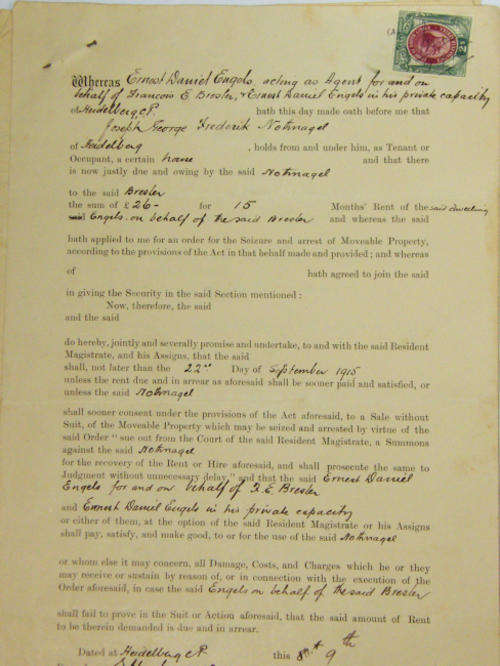 Whereas Ernest Daniel Engels, acting as Agent for and on
behalf of Francois E Bresler, & Ernest Daniel Engels in his private capacity
of Heidelberg C.P. hath this day made oath before me that
Joseph George Frederik Nothnagel
of Heidelberg , holds from and under him, as Tenant or
Occupant, a certain house and that there
is now justly due and owing by the said Nothnagel
to the said Bresler
the sum of £26- for 15 Months' Rent of the said dwelling
said Engels on behalf of the said Bresler and whereas the said
hath applied to me for an order for the Seizure and arrest of Moveable Property,
according to the provisions of the Act in that behalf made and provided; and whereas
of hath agreed to join the said
in giving the Security in the said Section mentioned:
Now, therefore, the said
and the said
do hereby, jointly and severally promise and undertake, to and with the said Resident
Magistrate, and his Assigns, that the said
shall, not later than the 22nd Day of September 1915
unless the rent due and in arrear as aforesaid shall be sooner paid and satisfied, or
unless the said Nothnagel
shall sooner consent under the provisions of the Act aforesaid, to a Sale without
Suit, of the Moveable Property which may be seized and arrested by virtue of the
said Order " sue out from the Court of the said Resident Magistrate, a Summons
against the said Nothnagel
for the recovery of the Rent or Hire aforesaid, and shall prosecute the same to
Judgment without unnecessary delay," and that the said Ernest Daniel
Engels for and on behalf of F. E. Bresler
and Ernest Daniel Engels in his private capacity
or either of them, at the option of the said Resident Magistrate or his Assigns
shall pay, satisfy, and make good, to or for the use of the said Nothnagel
or whom else it may concern, all Damage, Costs, and Charges which he or they
may receive or sustain by reason of, or in connection with the execution of the
Order aforesaid, in case the said Engels on behalf of the said Bresler
shall fail to prove in the Suit or Action aforesaid, that the said amount of Rent
to be therein demanded is due and in arrear.
Dated at Heidelberg C.P. this 9th